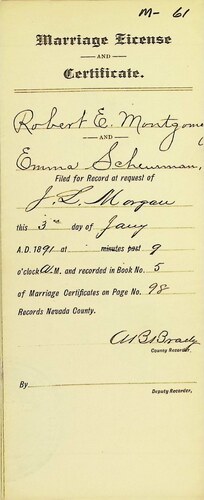 M- 61
Marriage License
AND
Certificate.
Robert E. Montgomery
AND
Emma Scheurman,
Filed for Record at request of
J. L. Morgan
this 3rd day of Jany
A.D. 1891 at minutes past 9
o'clock A.M. and recorded in Book No. 5
of Marriage Certificates on Page No. 98
Records Nevada County.
A B Brady
County Recorder.
By
Deputy Recorder.